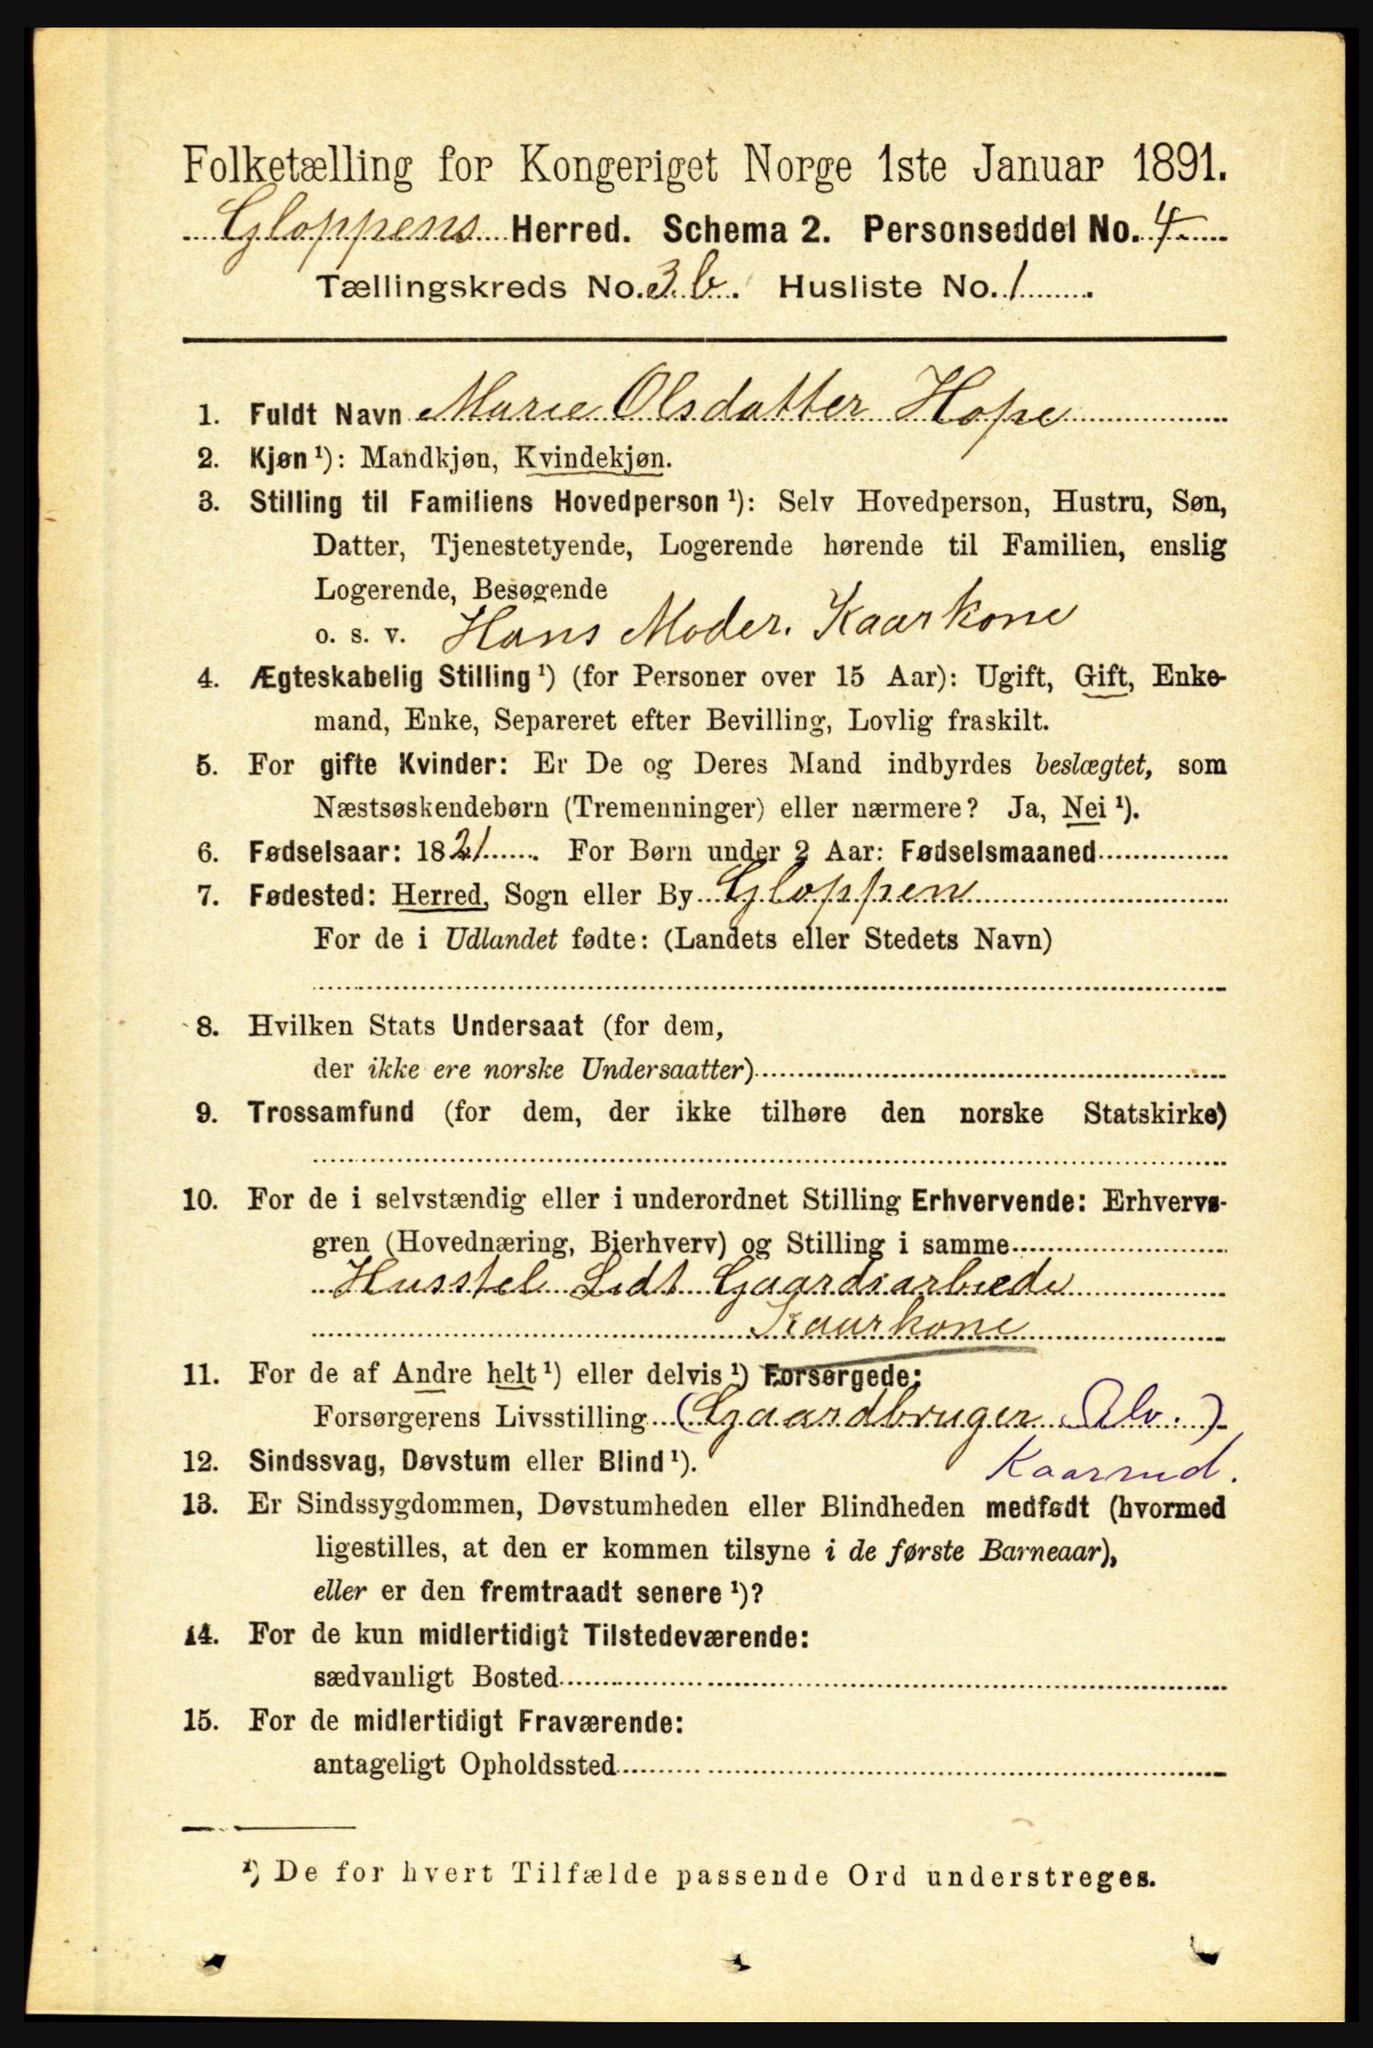 Folketælling for Kongeriget Norge 1ste Januar 1891.
Gloppens Herred. Schema 2. Personseddel No. 4
Tællingskreds No. 3 b. Husliste No. 1
1. Fuldt Navn Marie Olsdatter Hope
2. Kjøn ¹): Mandkjøn, Kvindekjøn.
3. Stilling til Familiens Hovedperson ¹): Selv Hovedperson, Hustru, Søn,
Datter, Tjenestetyende, Logerende hørende til Familien, enslig
Logerende, Besøgende
o. s. v. Hans Moder. Kaarkone
4. Ægteskabelig Stilling ¹) (for Personer over 15 Aar): Ugift, Gift, Enke-
mand, Enke, Separeret efter Bevilling, Lovlig fraskilt.
5. For gifte Kvinder: Er De og Deres Mand indbyrdes beslægtet, som
Næstsøskendebørn (Tremenninger) eller nærmere? Ja, Nei ¹).
6. Fødselsaar: 1821. For Børn under 2 Aar: Fødselsmaaned
7. Fødested: Herred, Sogn eller By Gloppen
For de i Udlandet fødte: (Landets eller Stedets Navn)
8. Hvilken Stats Undersaat (for dem,
der ikke ere norske Undersaatter)
9. Trossamfund (for dem, der ikke tilhøre den norske Statskirke)
10. For de i selvstændig eller i underordnet Stilling Erhvervende: Erhvervs-
gren (Hovednæring, Bierhverv) og Stilling i samme
Husstel Lidt Gaardsarbeide
Kaarkone
11. For de af Andre helt ¹) eller delvis ¹) Forsørgede:
Forsørgerens Livsstilling (Gaardbruger Selv.)
12. Sindssvag, Døvstum eller Blind ¹). Kaarmd.
13. Er Sindssygdommen, Døvstumheden eller Blindheden medfødt (hvormed
ligestilles, at den er kommen tilsyne i de første Barneaar),
eller er den fremtraadt senere ¹)?
14. For de kun midlertidigt Tilstedeværende:
sædvanligt Bosted
15. For de midlertidigt Fraværende:
antageligt Opholdssted
¹) De for hvert Tilfælde passende Ord understreges.